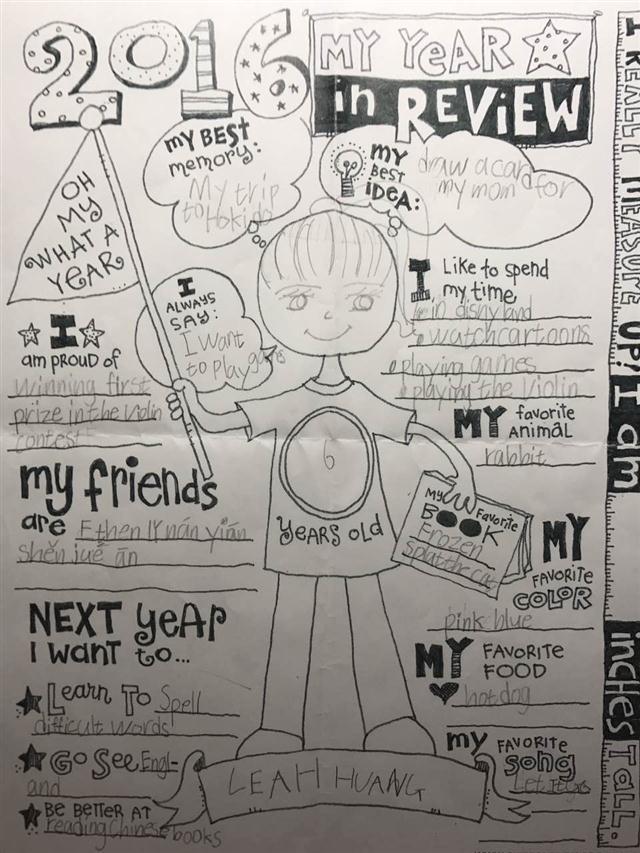 2016
MY YEAR
in REVIEW
MY BEST
memory:
My trip
to Hokido
MY
BEST
IDEA:
draw a card for
my mom
OH
MY
WHAT A
YEAR
I
ALWAYS
SAY:
I want
to play games
I
am PROUD OF
winning first
prize in the violin
contest
I Like to spend
my time
in disny land
watch cartoons
playing games
playing the violin
MY favorite
ANIMAL
rabbit
my friends
are Ethen lǐ nán yián
shěn juě ān
6
YEARS OLD
MY Favorite
BOOK
Frozen
Splat the cat
MY
FAVORITE
COLOR
pink blue
NEXT YEAR
I WANT to...
LEARN TO Spell
difficult words
GO SEE Engl-
and
BE BETTER AT
reading Chinese books
MY FAVORITE
FOOD
hot dog
my FAVORITE
Song
Let It Go
LEAH HUANG
I REALLY MEASURE UP! I am
inches Tall.